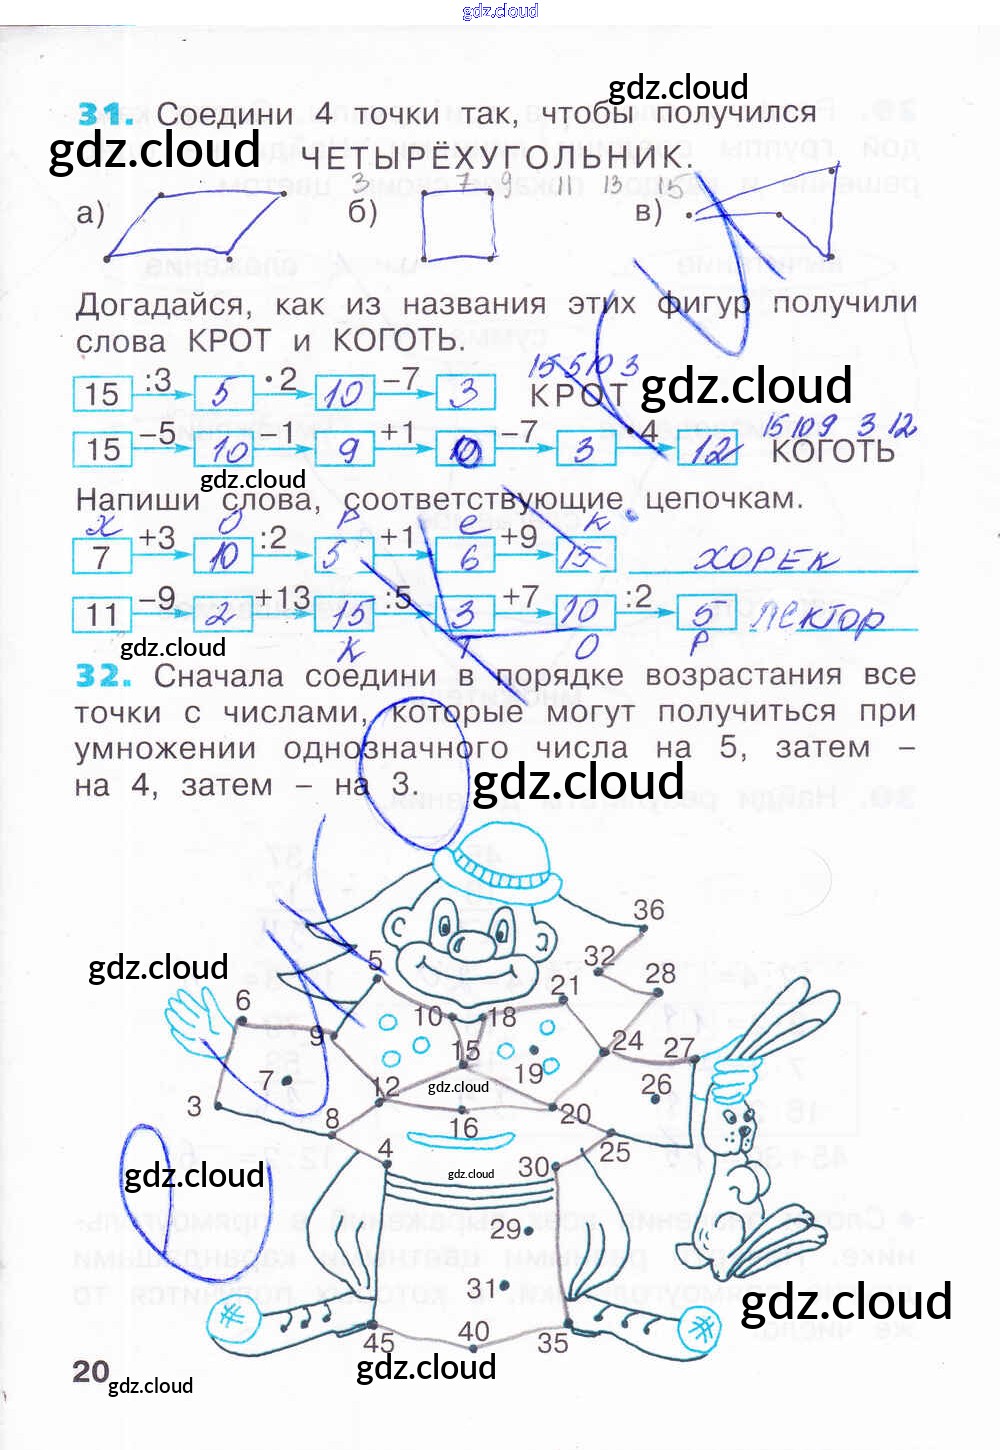 gdz.cloud
gdz.cloud
31. Соедини 4 точки так, чтобы получился
gdz.cloud
ЧЕТЫРЁХУГОЛЬНИК.
3 7 9 11 13 15
а) б) в)
Догадайся, как из названия этих фигур получили
слова КРОТ и КОГОТЬ.
gdz.cloud
15 5 10 3
15 :3 5 ·2 10 –7 3 КРОТ
15 10 9 3 12
15 –5 10 –1 9 +1 10 –7 3 ·4 12 КОГОТЬ
gdz.cloud
Напиши слова, соответствующие цепочкам.
Х О Р Е К
7 +3 10 :2 5 +1 6 +9 15 ХОРЕК
11 –9 2 +13 15 :5 3 +7 10 :2 5 ЛЕКТОР
К Т О Р
gdz.cloud
32. Сначала соедини в порядке возрастания все
точки с числами, которые могут получиться при
умножении однозначного числа на 5, затем –
на 4, затем – на 3.
gdz.cloud
36
32
gdz.cloud
5 28
21
6 10 18
9 24 27
15
7 19 26
12 gdz.cloud
3 8 16 20
4 25
gdz.cloud gdz.cloud 30
29
31
gdz.cloud
45 40 35
gdz.cloud
20
gdz.cloud